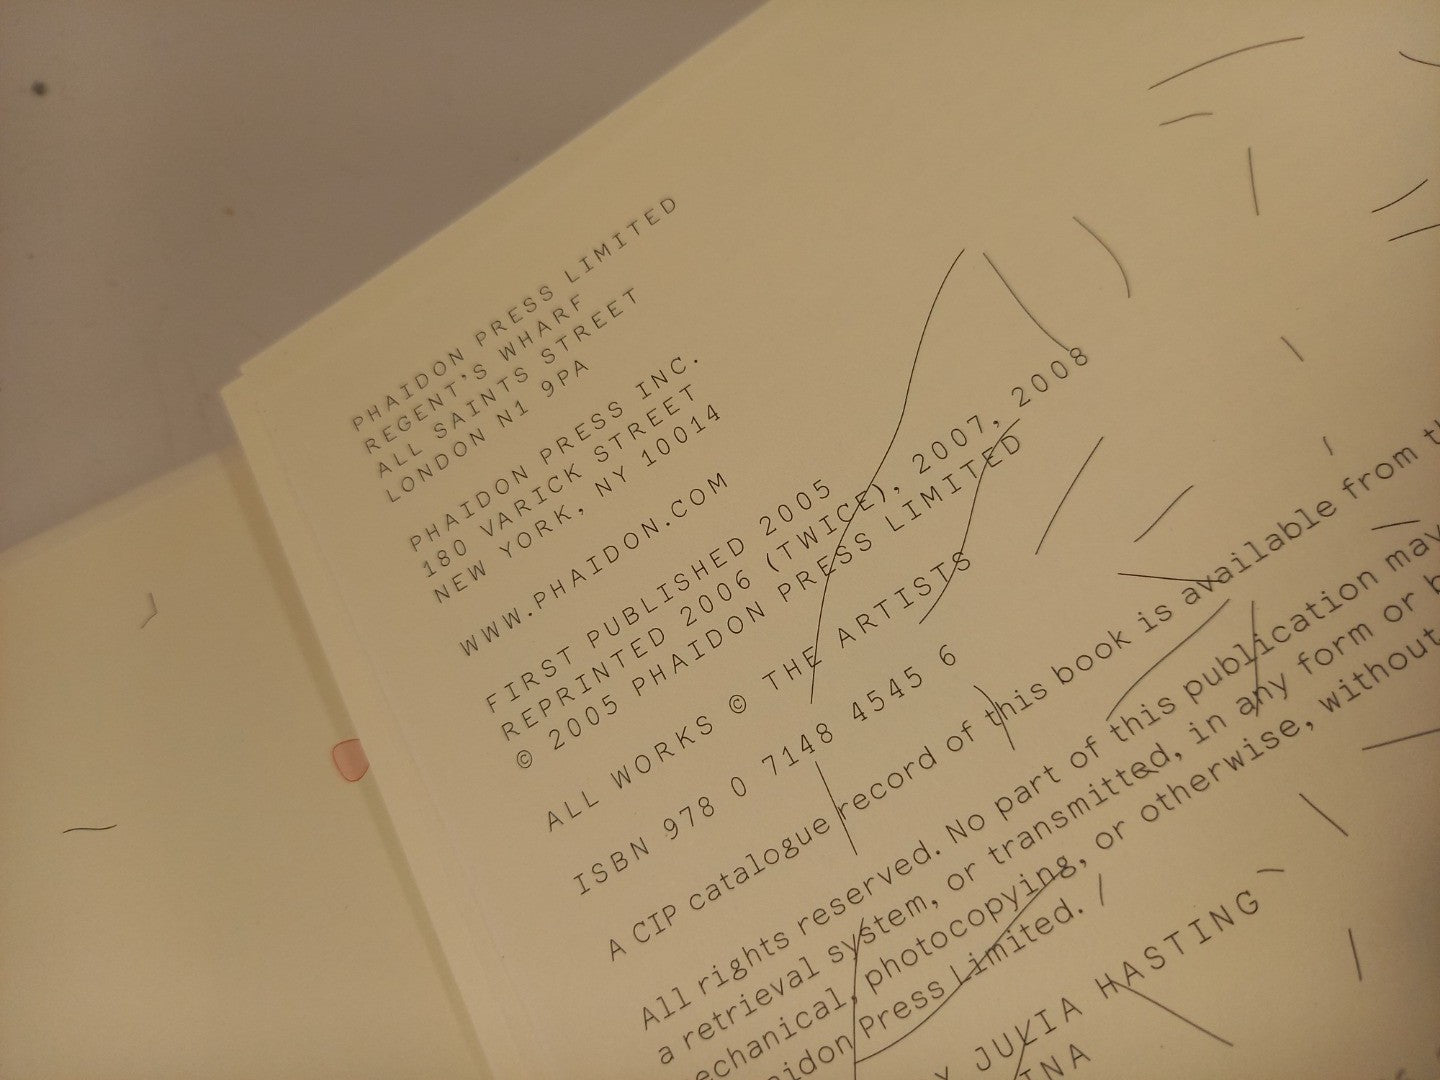 PHAIDON PRESS LIMITED
REGENT'S WHARF
ALL SAINTS STREET
LONDON N1 9PA
PHAIDON PRESS INC.
180 VARICK STREET
NEW YORK, NY 10014
WWW.PHAIDON.COM
FIRST PUBLISHED 2005
REPRINTED 2006 (TWICE), 2007, 2008
© 2005 PHAIDON PRESS LIMITED
ALL WORKS © THE ARTISTS
ISBN 978 0 7148 4545 6
A CIP catalogue record of this book is available from
All rights reserved. No part of this publication may
a retrieval system, or transmitted, in any form or
echanical, photocopying, or otherwise, without
aidon Press Limited.
JULIA HASTING
INA